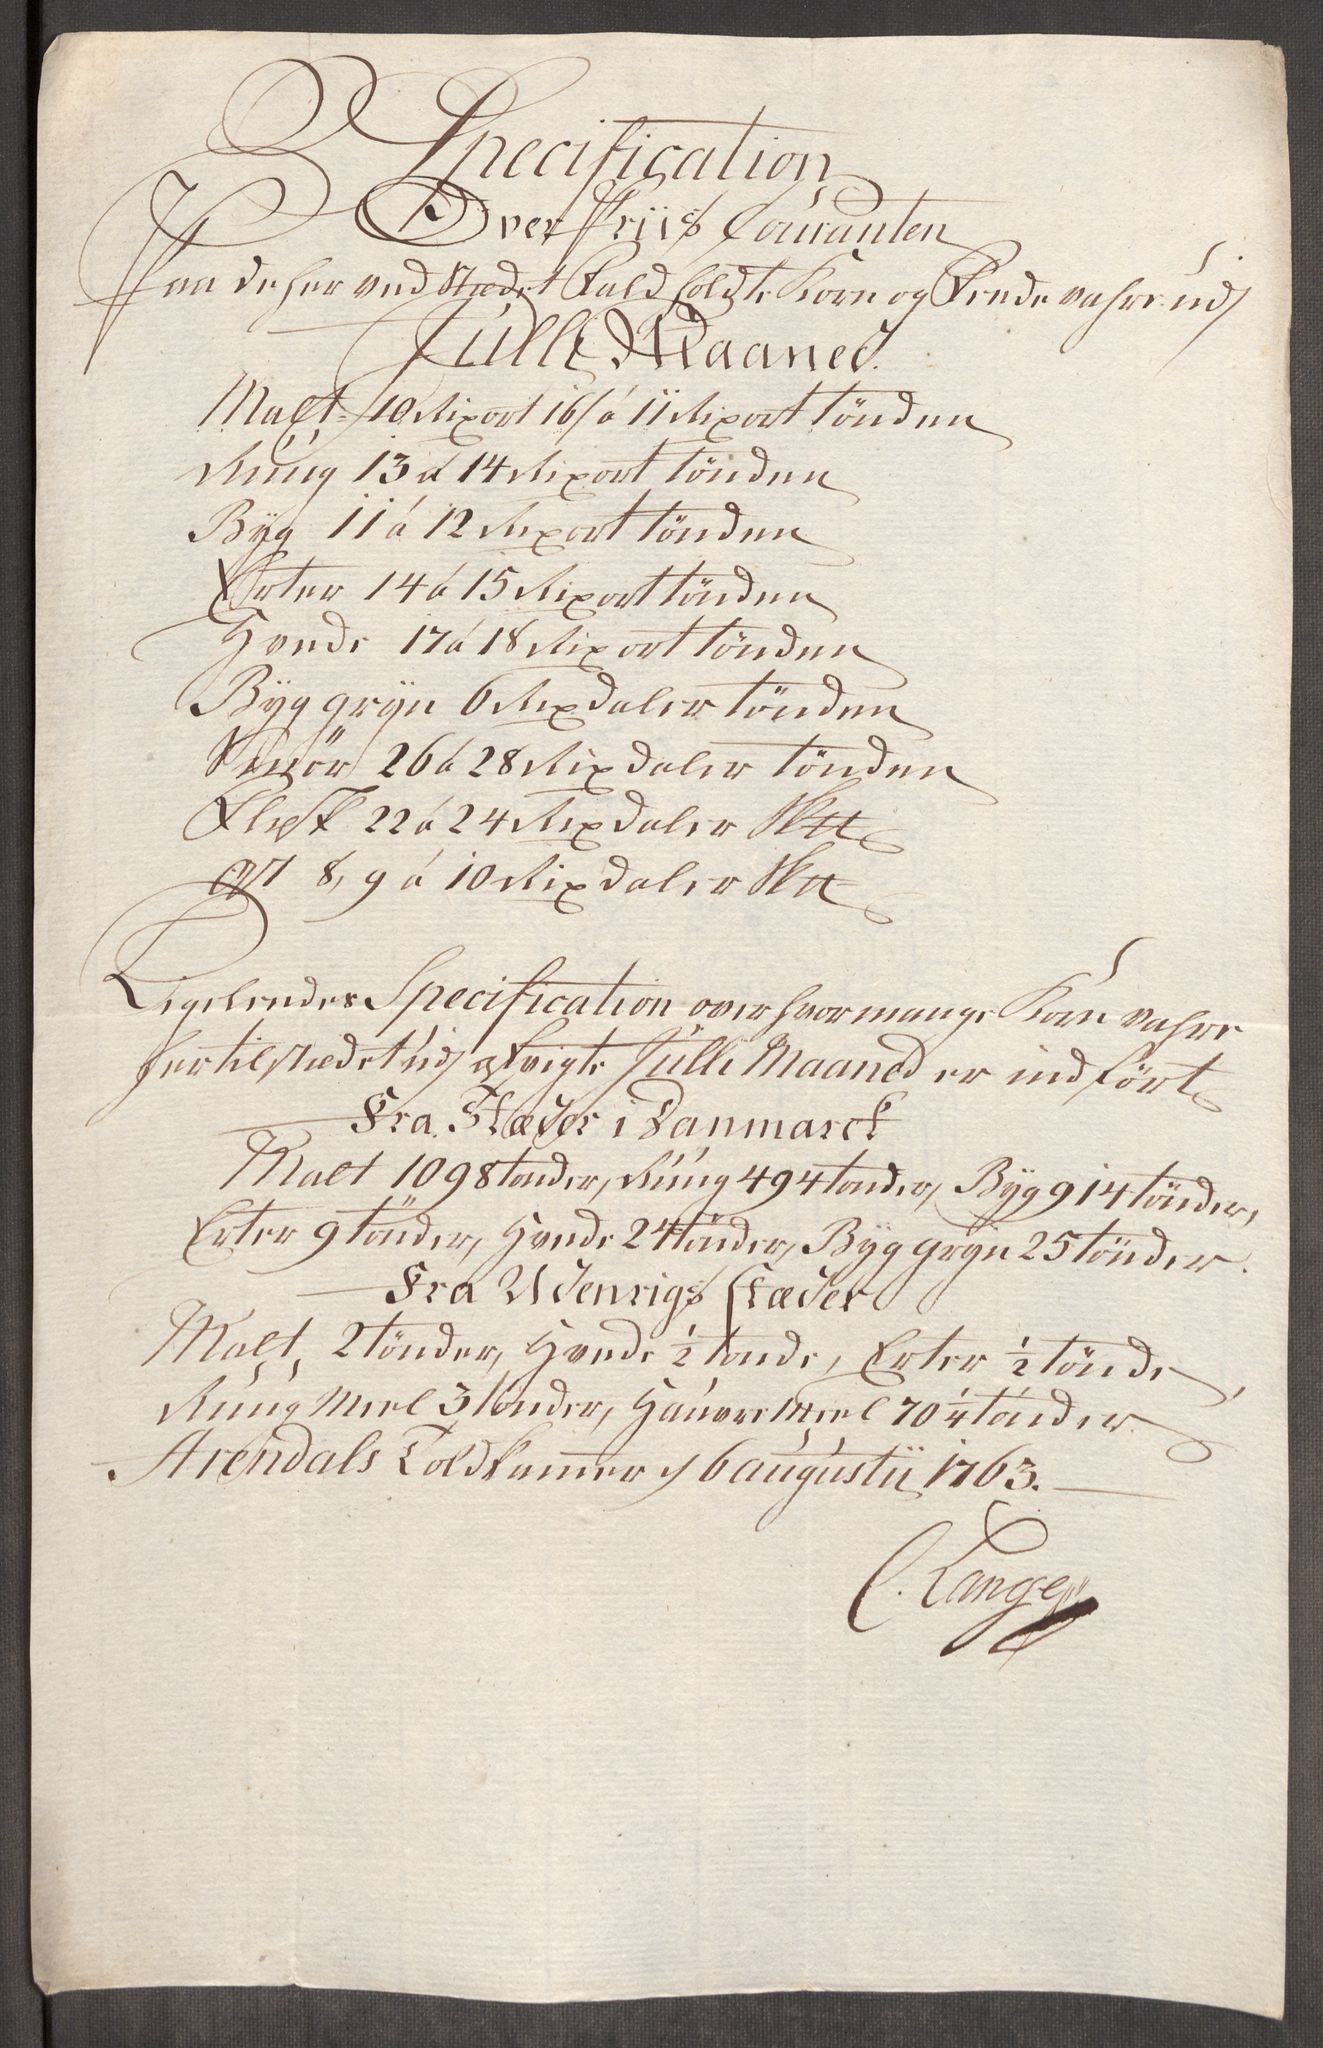 Specification
Over Priis Couranten
Paa de her ved Stædet Fald holdte Korn og Fede vahre udj
Julli Maaned.
Malt 10 Rixort 16 s a 11 Rixort tönden
Rúug 13 a 14 Rixort tönden
Byg 11 á 12 Rixort tönden
Erter 14 á 15 Rixort tönden
Hvede 17 á 18 Rixort tönden
Byg gryn 6 Rixdaler tönden
Smör 26 á 28 Rixdaler tönden
Flesk 22 á 24 Rixdaler Skt
Ost 8, 9 á 10 Rixdaler Skt
Ligeleedes Specification over hvormange Korn vahre
her til Stædet udj afvigte Julli Maaned er indfört
Fra Stæder i Danmarck
Malt 1098 tonder, Rúúg 494 tonder, Byg 914 tönder,
Erter 9 tönder, Hvede 24 tönder, Byg gryn 25 tönder.
Fra Udenrigs Stæder
Malt, 2 tönder, Hvede ½ tonde, Erter ½ tönde,
Rúúg Meel 3 tonder, Haúvre Meel 70 ¼ tönder
Arendals Toldkammer d 6 augustii 1763.
C. Lange